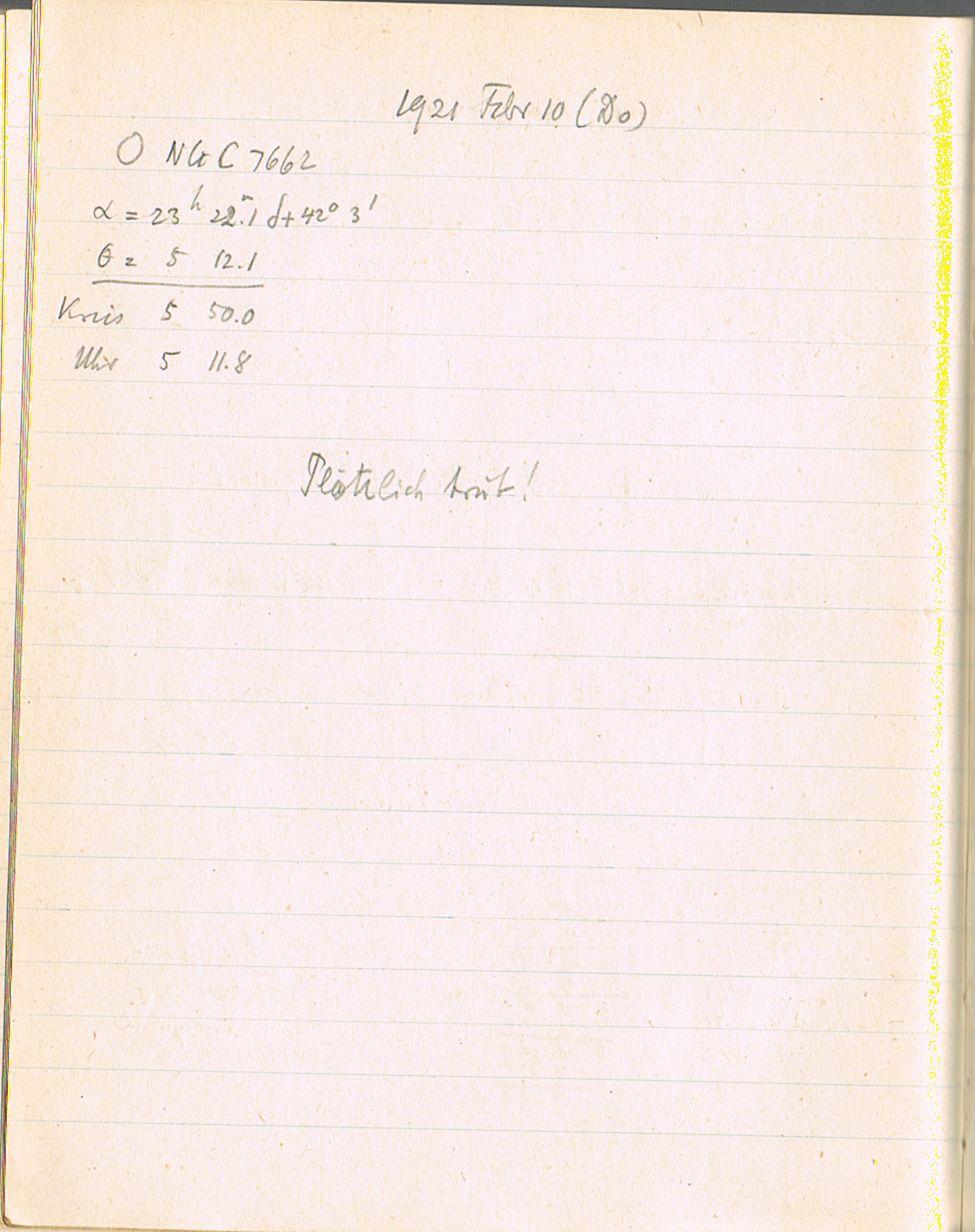 1921 Febr 10 (Do)
○ NGC 7662
α = 23ʰ 22ᵐ.1 δ + 42° 3'
θ = 5 12.1
Kreis 5 50.0
Uhr 5 11.8
Plötzlich trüb!